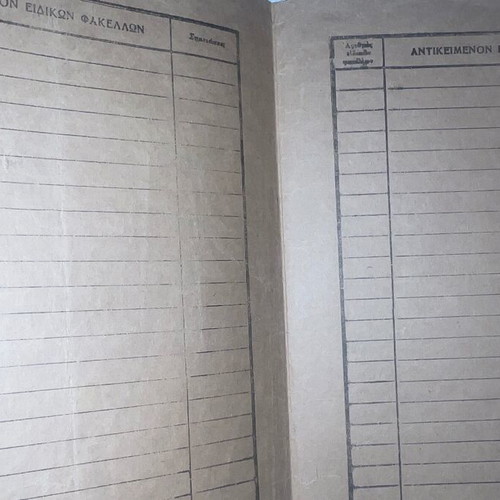 ΟΝ ΕΙΔΙΚΩΝ ΦΑΚΕΛΛΩΝ
Σημειώσεις
Ἀριθμὸς
εἰδικοῦ
φακέλλου
ΑΝΤΙΚΕΙΜΕΝΟΝ